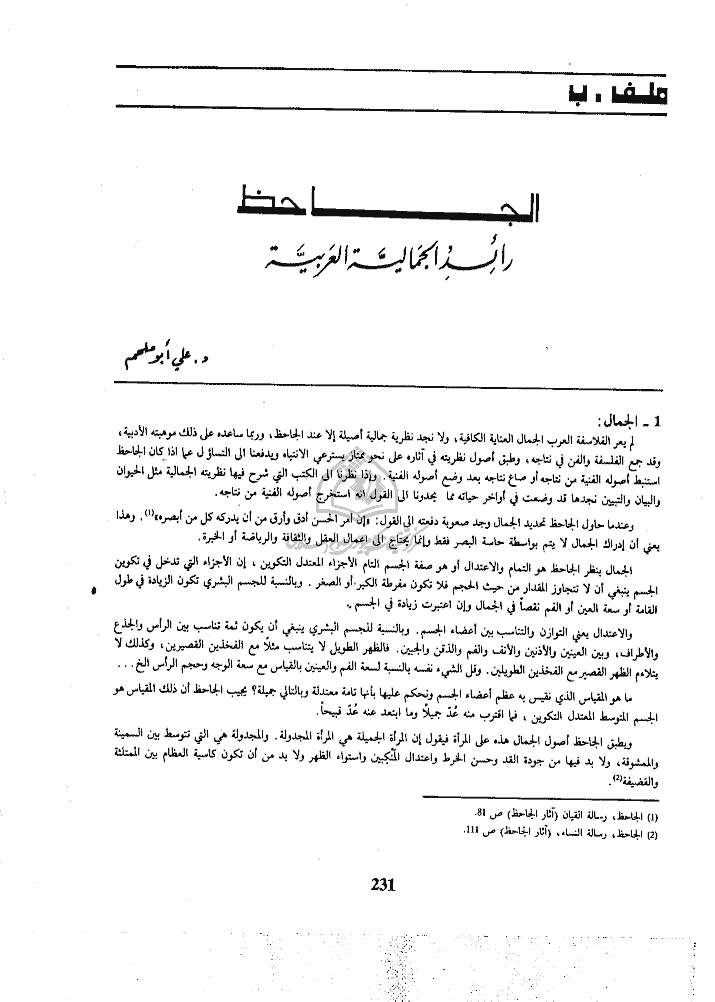 ملف . ب
الجاحظ
رائد الجمالية العربية
د. علي أبو ملحم
1 ـ الجمال :
لم يعر الفلاسفة العرب الجمال العناية الكافية، ولا نجد نظرية جمالية أصيلة إلا عند الجاحظ، وربما ساعده على ذلك موهبته الأدبية،
وقد جمع الفلسفة والفن في نتاجه، وطبق أصول نظريته في آثاره على نحو ممتاز يسترعي الانتباه ويدفعنا الى التساؤل عما اذا كان الجاحظ
استنبط أصوله الفنية من نتاجه أو صاغ نتاجه بعد وضع أصوله الفنية. وإذا نظرنا الى الكتب التي شرح فيها نظريته الجمالية مثل الحيوان
والبيان والتبيين نجدها قد وضعت في أواخر حياته مما يحدونا الى القول انه استخرج أصوله الفنية من نتاجه.
وعندما حاول الجاحظ تحديد الجمال وجد صعوبة دفعته الى القول: «إن أمر الحسن أدق وأرق من أن يدركه كل من أبصره»(1). وهذا
يعني أن إدراك الجمال لا يتم بواسطة حاسة البصر فقط وإنما يحتاج الى اعمال العقل والثقافة والرياضة أو الخبرة.
الجمال بنظر الجاحظ هو التمام والاعتدال أو هو صفة الجسم التام الأجزاء المعتدل التكوين ، إن الأجزاء التي تدخل في تكوين
الجسم ينبغي أن لا تتجاوز المقدار من حيث الحجم فلا تكون مفرطة الكبر أو الصغر . وبالنسبة للجسم البشري تكون الزيادة في طول
القامة أو سعة العين أو الفم نقصاً في الجمال وإن اعتبرت زيادة في الجسم .
والاعتدال يعني التوازن والتناسب بين أعضاء الجسم. وبالنسبة للجسم البشري ينبغي أن يكون ثمة تناسب بين الرأس والجذع
والأطراف، وبين العينين والأذنين والأنف والفم والذقن والجبين. فالظهر الطويل لا يتناسب مثلاً مع الفخذين القصيرين، وكذلك لا
يتلاءم الظهر القصير مع الفخذين الطويلين. وقل الشيء نفسه بالنسبة لسعة الفم والعينين بالقياس مع سعة الوجه وحجم الرأس الخ...
ما هو المقياس الذي نقيس به عظم أعضاء الجسم ونحكم عليها بأنها تامة معتدلة وبالتالي جميلة؟ يجيب الجاحظ أن ذلك المقياس هو
الجسم المتوسط المعتدل التكوين ، فما اقترب منه عُدّ جميلاً وما ابتعد عنه عُدّ قبيحاً.
ويطبق الجاحظ أصول الجمال هذه على المرأة فيقول إن المرأة الجميلة هي المرأة المجدولة. والمجدولة هي التي تتوسط بين السمينة
والممشوقة، ولا بد فيها من جودة القد وحسن الخرط واعتدال المنكبين واستواء الظهر ولا بد من أن تكون كاسية العظام بين الممتلئة
والقضيفة(2).
(1) الجاحظ، رسالة القيان (آثار الجاحظ) ص 81.
(2) الجاحظ، رسالة النساء، (آثار الجاحظ) ص 111.
231